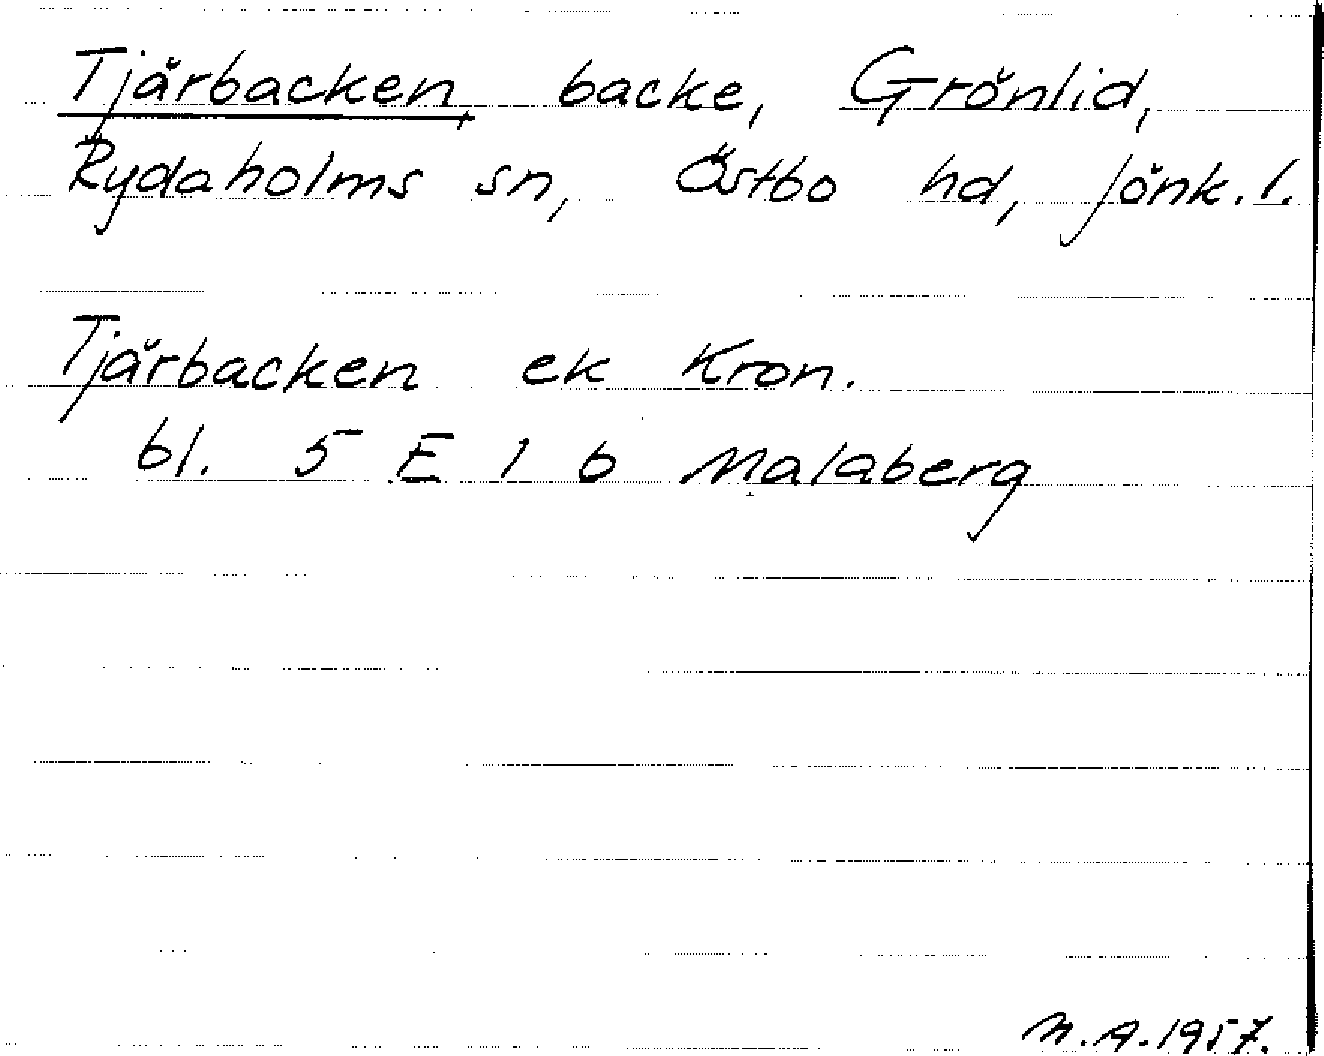 Tjärbacken, backe, Grönlid,
Rydaholms sn, Östbo hd, Jönk. l.
Tjärbacken ek Kron.
bl. 5 E 1 b Malaberg
N. A. 1957.